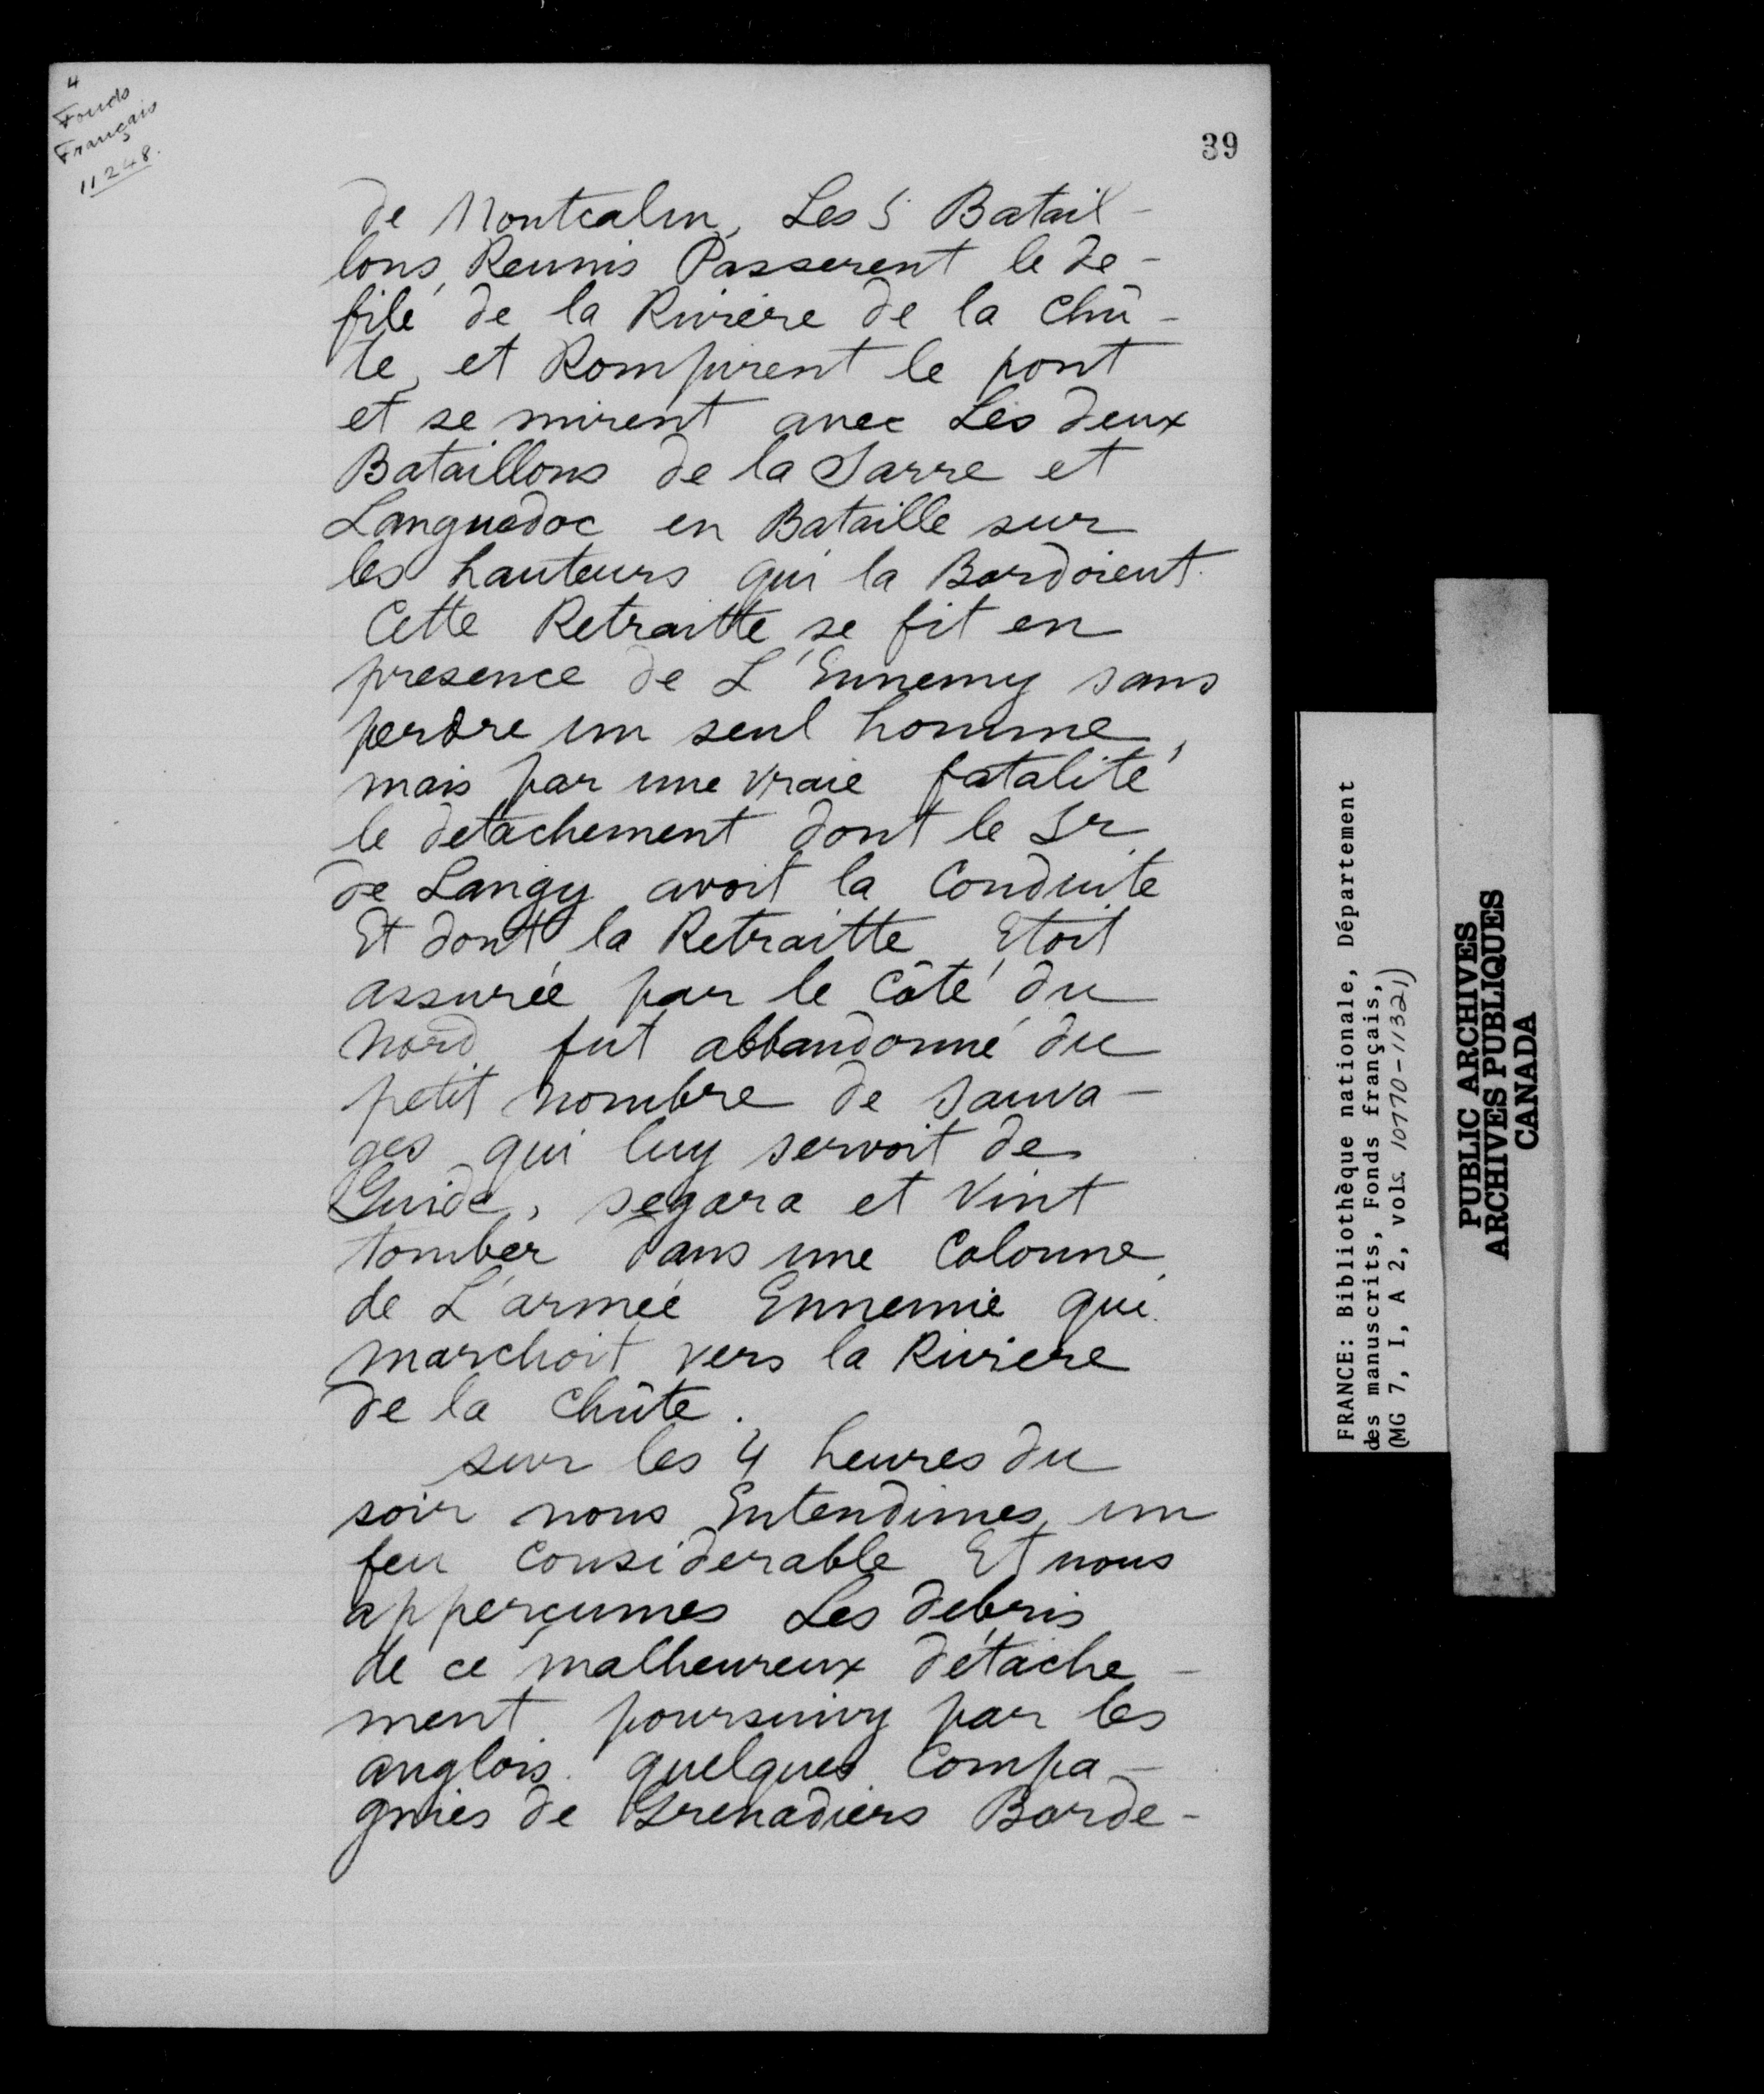 4
Fonds
Français
11248.
39
de Montcalm, Les 5 Batail-
lons, Reunis Passerent le de-
filé de la Riviere de la chû-
te, et Rompirent le pont
et se mirent avec Les deux
Bataillons de la Sarre et
Languedoc en Bataille sur
les hauteurs qui la Bordoient.
Cette Retraitte se fit en
presence de L'Ennemy sans
perdre un seul homme,
mais par une vraie fatalité
le detachement dont le Sr
de Langy avoit la Conduite
Et dont la Retraitte Etoit
assurée par le Côté du
nord fut abbandonné du
petit nombre de sauva-
ges qui luy servoit de
Guide, segara et vint
tomber dans une Colonne
de L'armée Ennemie qui
marchoit vers la Riviere
de la Chûte.
sur les 4 heures du
soir nous Entendimes un
feu considerable Et nous
apperçumes Les debris
de ce malheureux détache-
ment poursuivy par les
anglois. quelques Compa-
gnies de Grenadiers Borde-
FRANCE: Bibliothèque nationale, Département
des manuscrits, Fonds français,
(MG 7, I, A 2, vols. 10770-11321)
PUBLIC ARCHIVES
ARCHIVES PUBLIQUES
CANADA